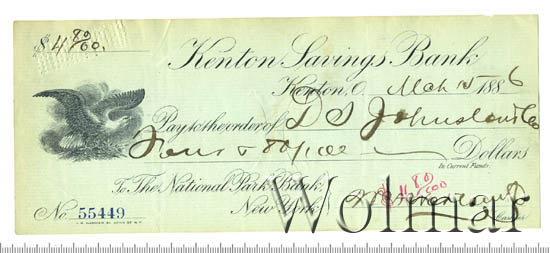 $ 4 80/100.
Kenton Savings Bank
Kenton, O. Mch 15 1886
Pay to the order of D S Johnston & Co
Four & 80/100 Dollars
In Current Funds.
To The National Park Bank,
New York.
80/100
Cashier
No. 55449
Wolmar